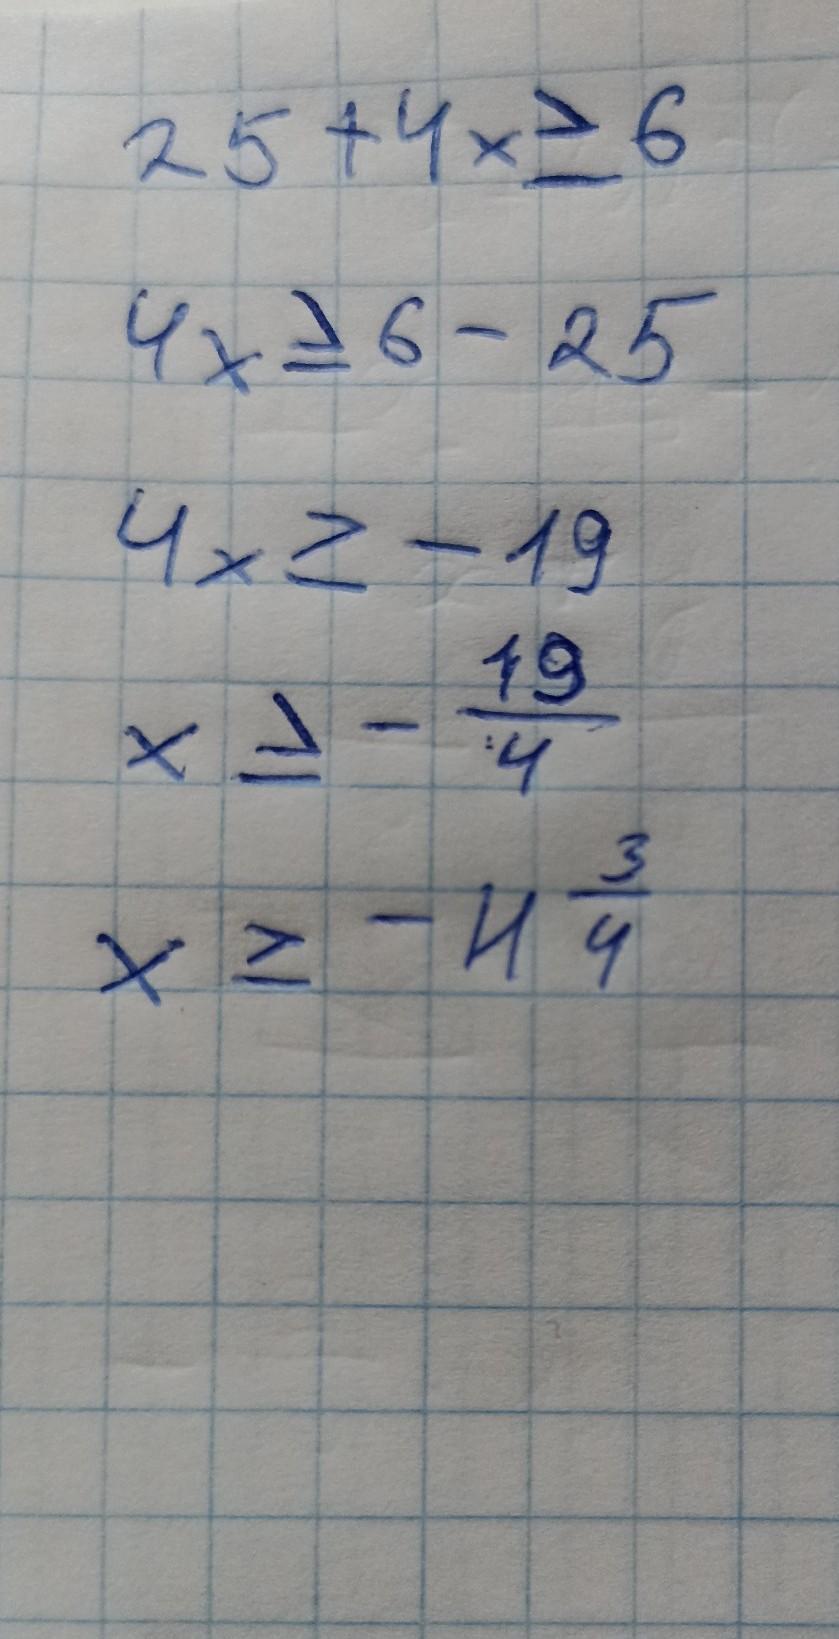 25 + 4x ≥ 6
4x ≥ 6 - 25
4x ≥ - 19
x ≥ - 19/4
x ≥ - 4 3/4